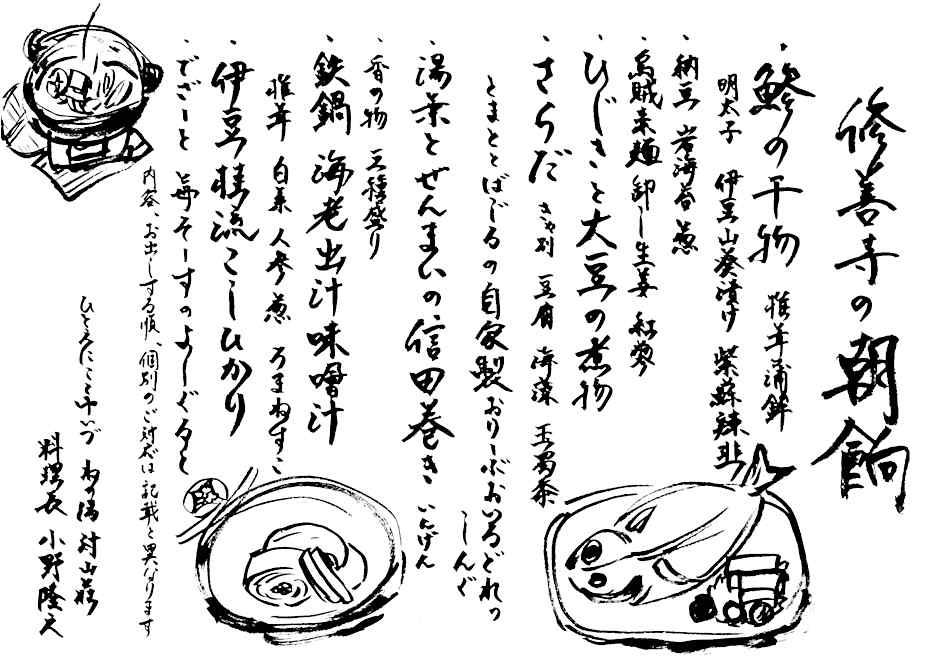 修善寺の朝餉
・鯵の干物 椎茸 蒲鉾
明太子 伊豆山葵漬け 紫蘇辣韮
・納豆 岩海苔 葱
・烏賊素麺 卸し生姜 紅蓼
・ひじきと大豆の煮物
・さらだ きゃ別 豆腐 海藻 玉蜀黍
とまととばじるの自家製おりーぶおいるどれっしんぐ
・湯葉とぜんまいの信田巻き いんげん
・香の物 三種盛り
・鉄鍋 海老出汁味噌汁
椎茸 白菜 人参 葱 ろまねすこ
・伊豆桂流こしひかり
・でざーと 苺そーすのよーぐると
内容、お出しする順、個別のご対応は記載と異なります
ひとえにこころいづ ねの湯 対山荘
料理長 小野隆之